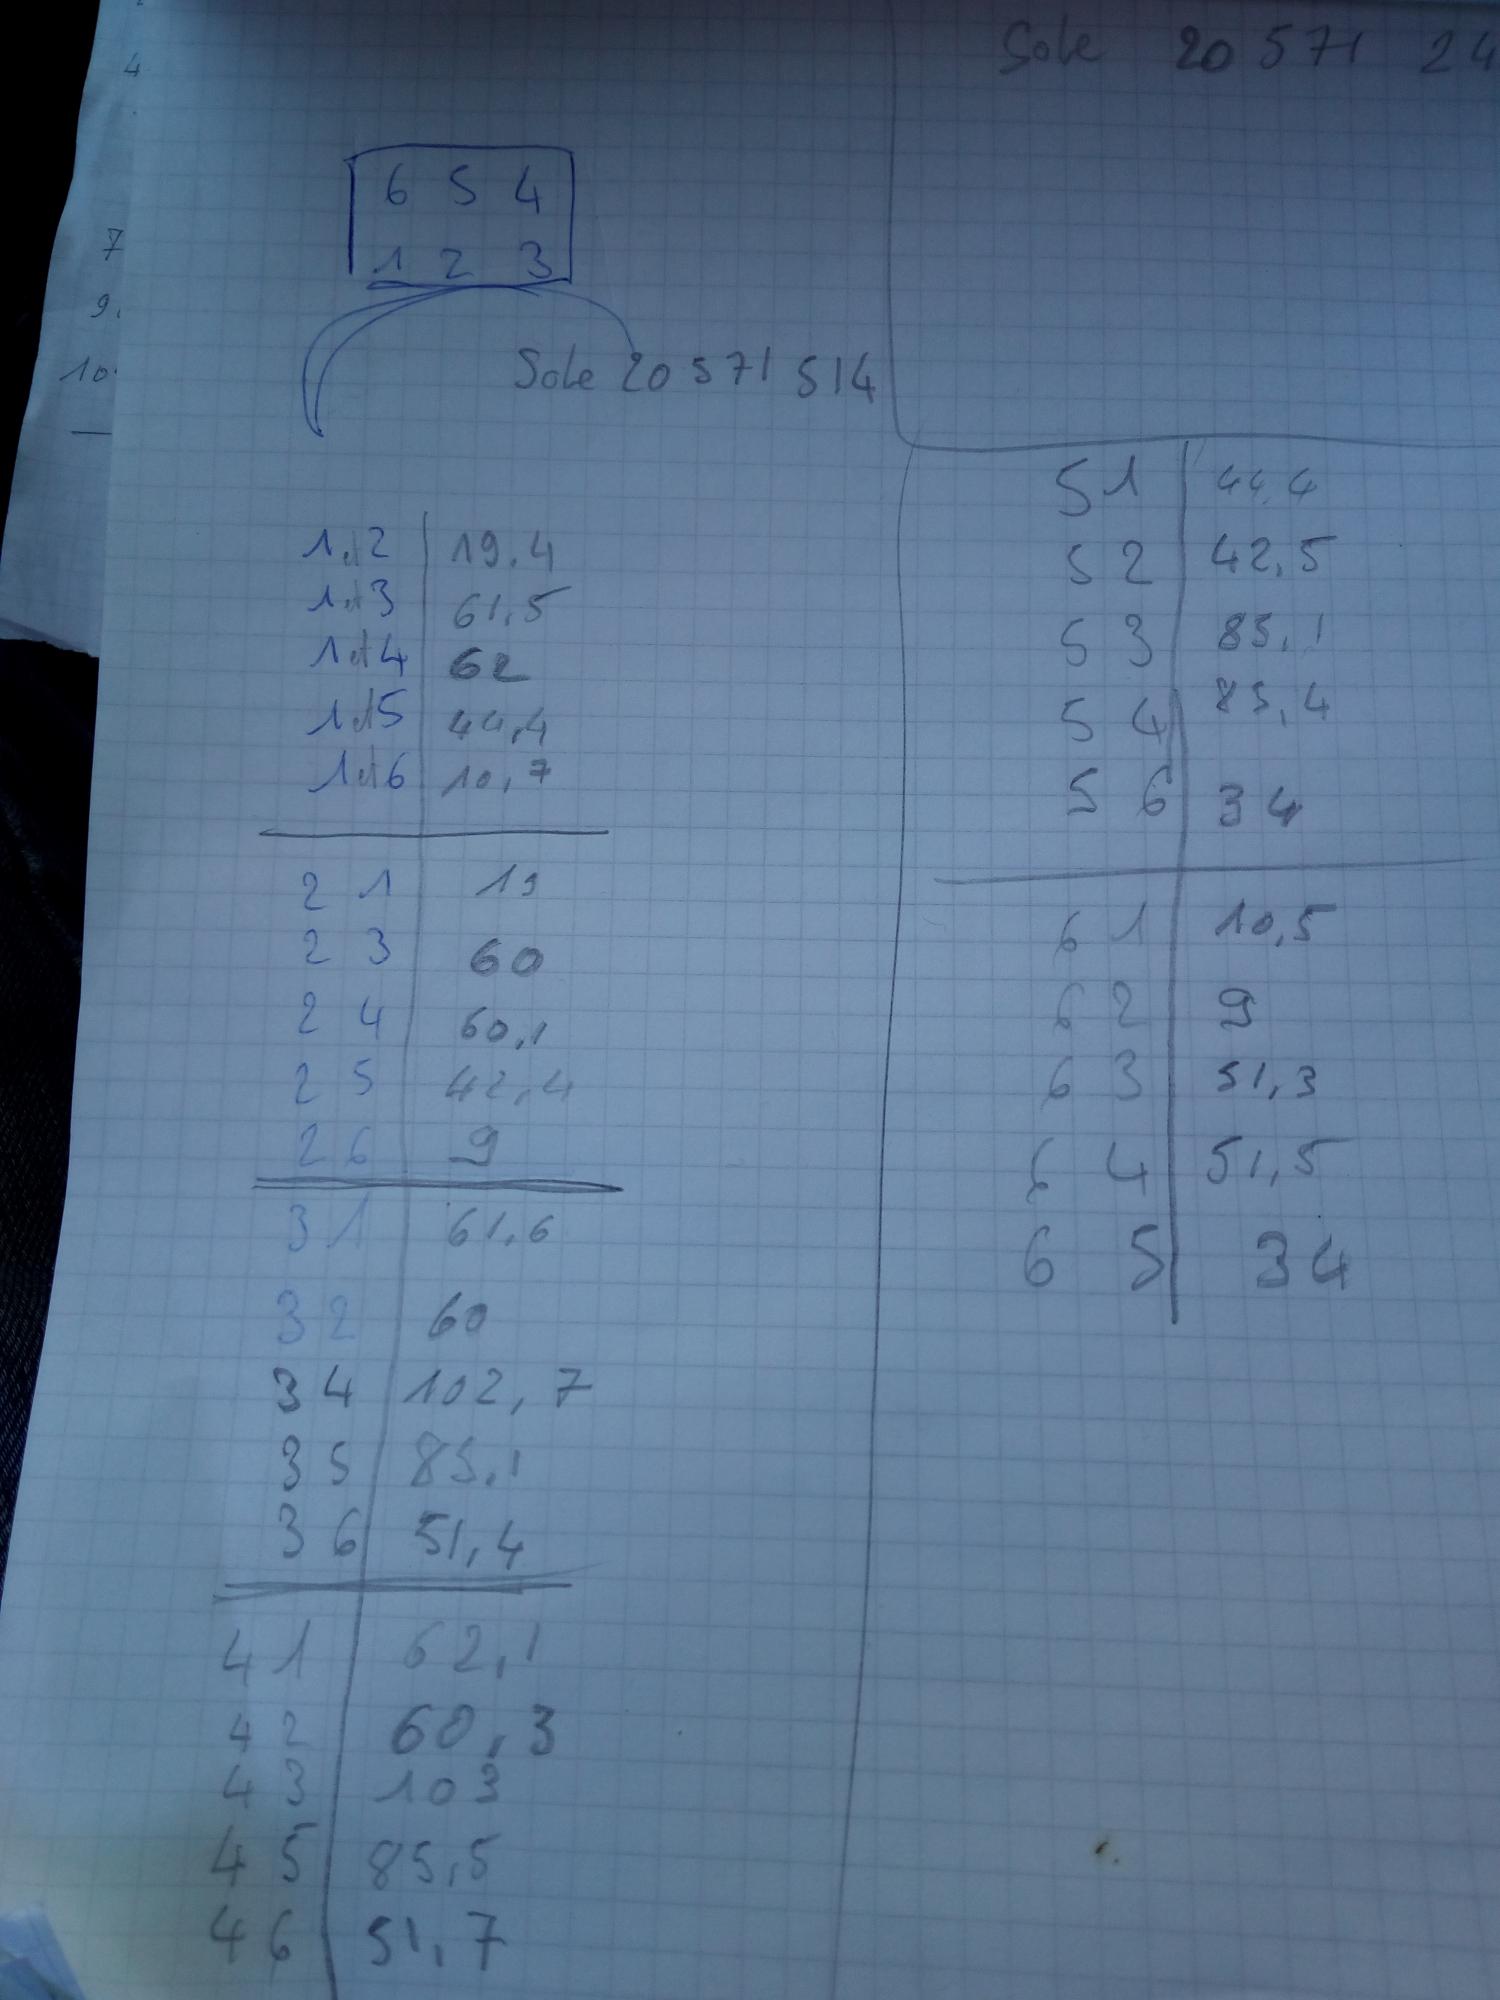 4
7
9.
10.
Sole 20 571 24
6 5 4
1 2 3
Sole 20 571 514
1 2 | 19,4
1 3 | 61,5
1 4 | 62
1 5 | 44,4
1 6 | 10,7
2 1 | 19
2 3 | 60
2 4 | 60,1
2 5 | 42,4
2 6 | 9
3 1 | 61,6
3 2 | 60
3 4 | 102,7
3 5 | 85,1
3 6 | 51,4
4 1 | 62,1
4 2 | 60,3
4 3 | 103
4 5 | 85,5
4 6 | 51,7
5 1 | 44,4
5 2 | 42,5
5 3 | 85,1
5 4 | 85,4
5 6 | 34
6 1 | 10,5
6 2 | 9
6 3 | 51,3
6 4 | 51,5
6 5 | 34